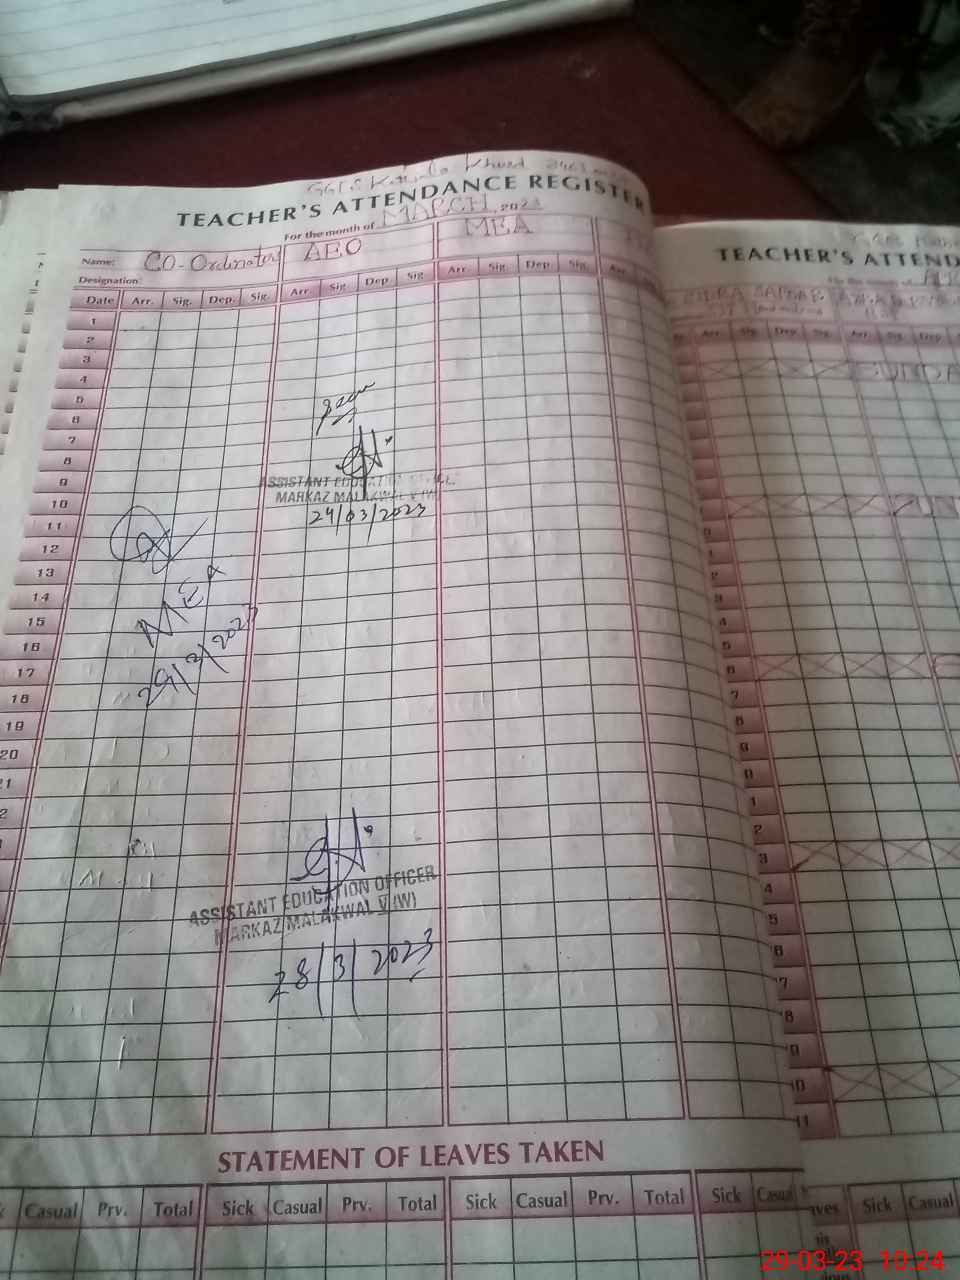 Khurd
TEACHER'S ATTENDANCE REGISTER
For the month of MARCH, 2023
Name: CO-Ordinators AEO MEA
Designation:
Date Arr. Sig. Dep. Sig. Arr. Sig. Dep. Sig. Arr. Sig. Dep. Sig. Arr.
1
2
3
4
5
6
7
8
9
10
11
12
13
14
15
16
17
18
19
20
21
2
ASSISTANT EDUCATION
MARKAZ MALAKWAL V (W)
24/03/2023
MEA
29/3/2023
ASSISTANT EDUCATION OFFICER
MARKAZ MALAKWAL V (W)
28/3/2023
STATEMENT OF LEAVES TAKEN
Casual Prv. Total Sick Casual Prv. Total Sick Casual Prv. Total Sick Casual
TEACHER'S ATTEND
Arr. Sig. Dep. Sig. Arr. Sig. Dep.
SUNDA
aves Sick Casual
29-03-23 10:24